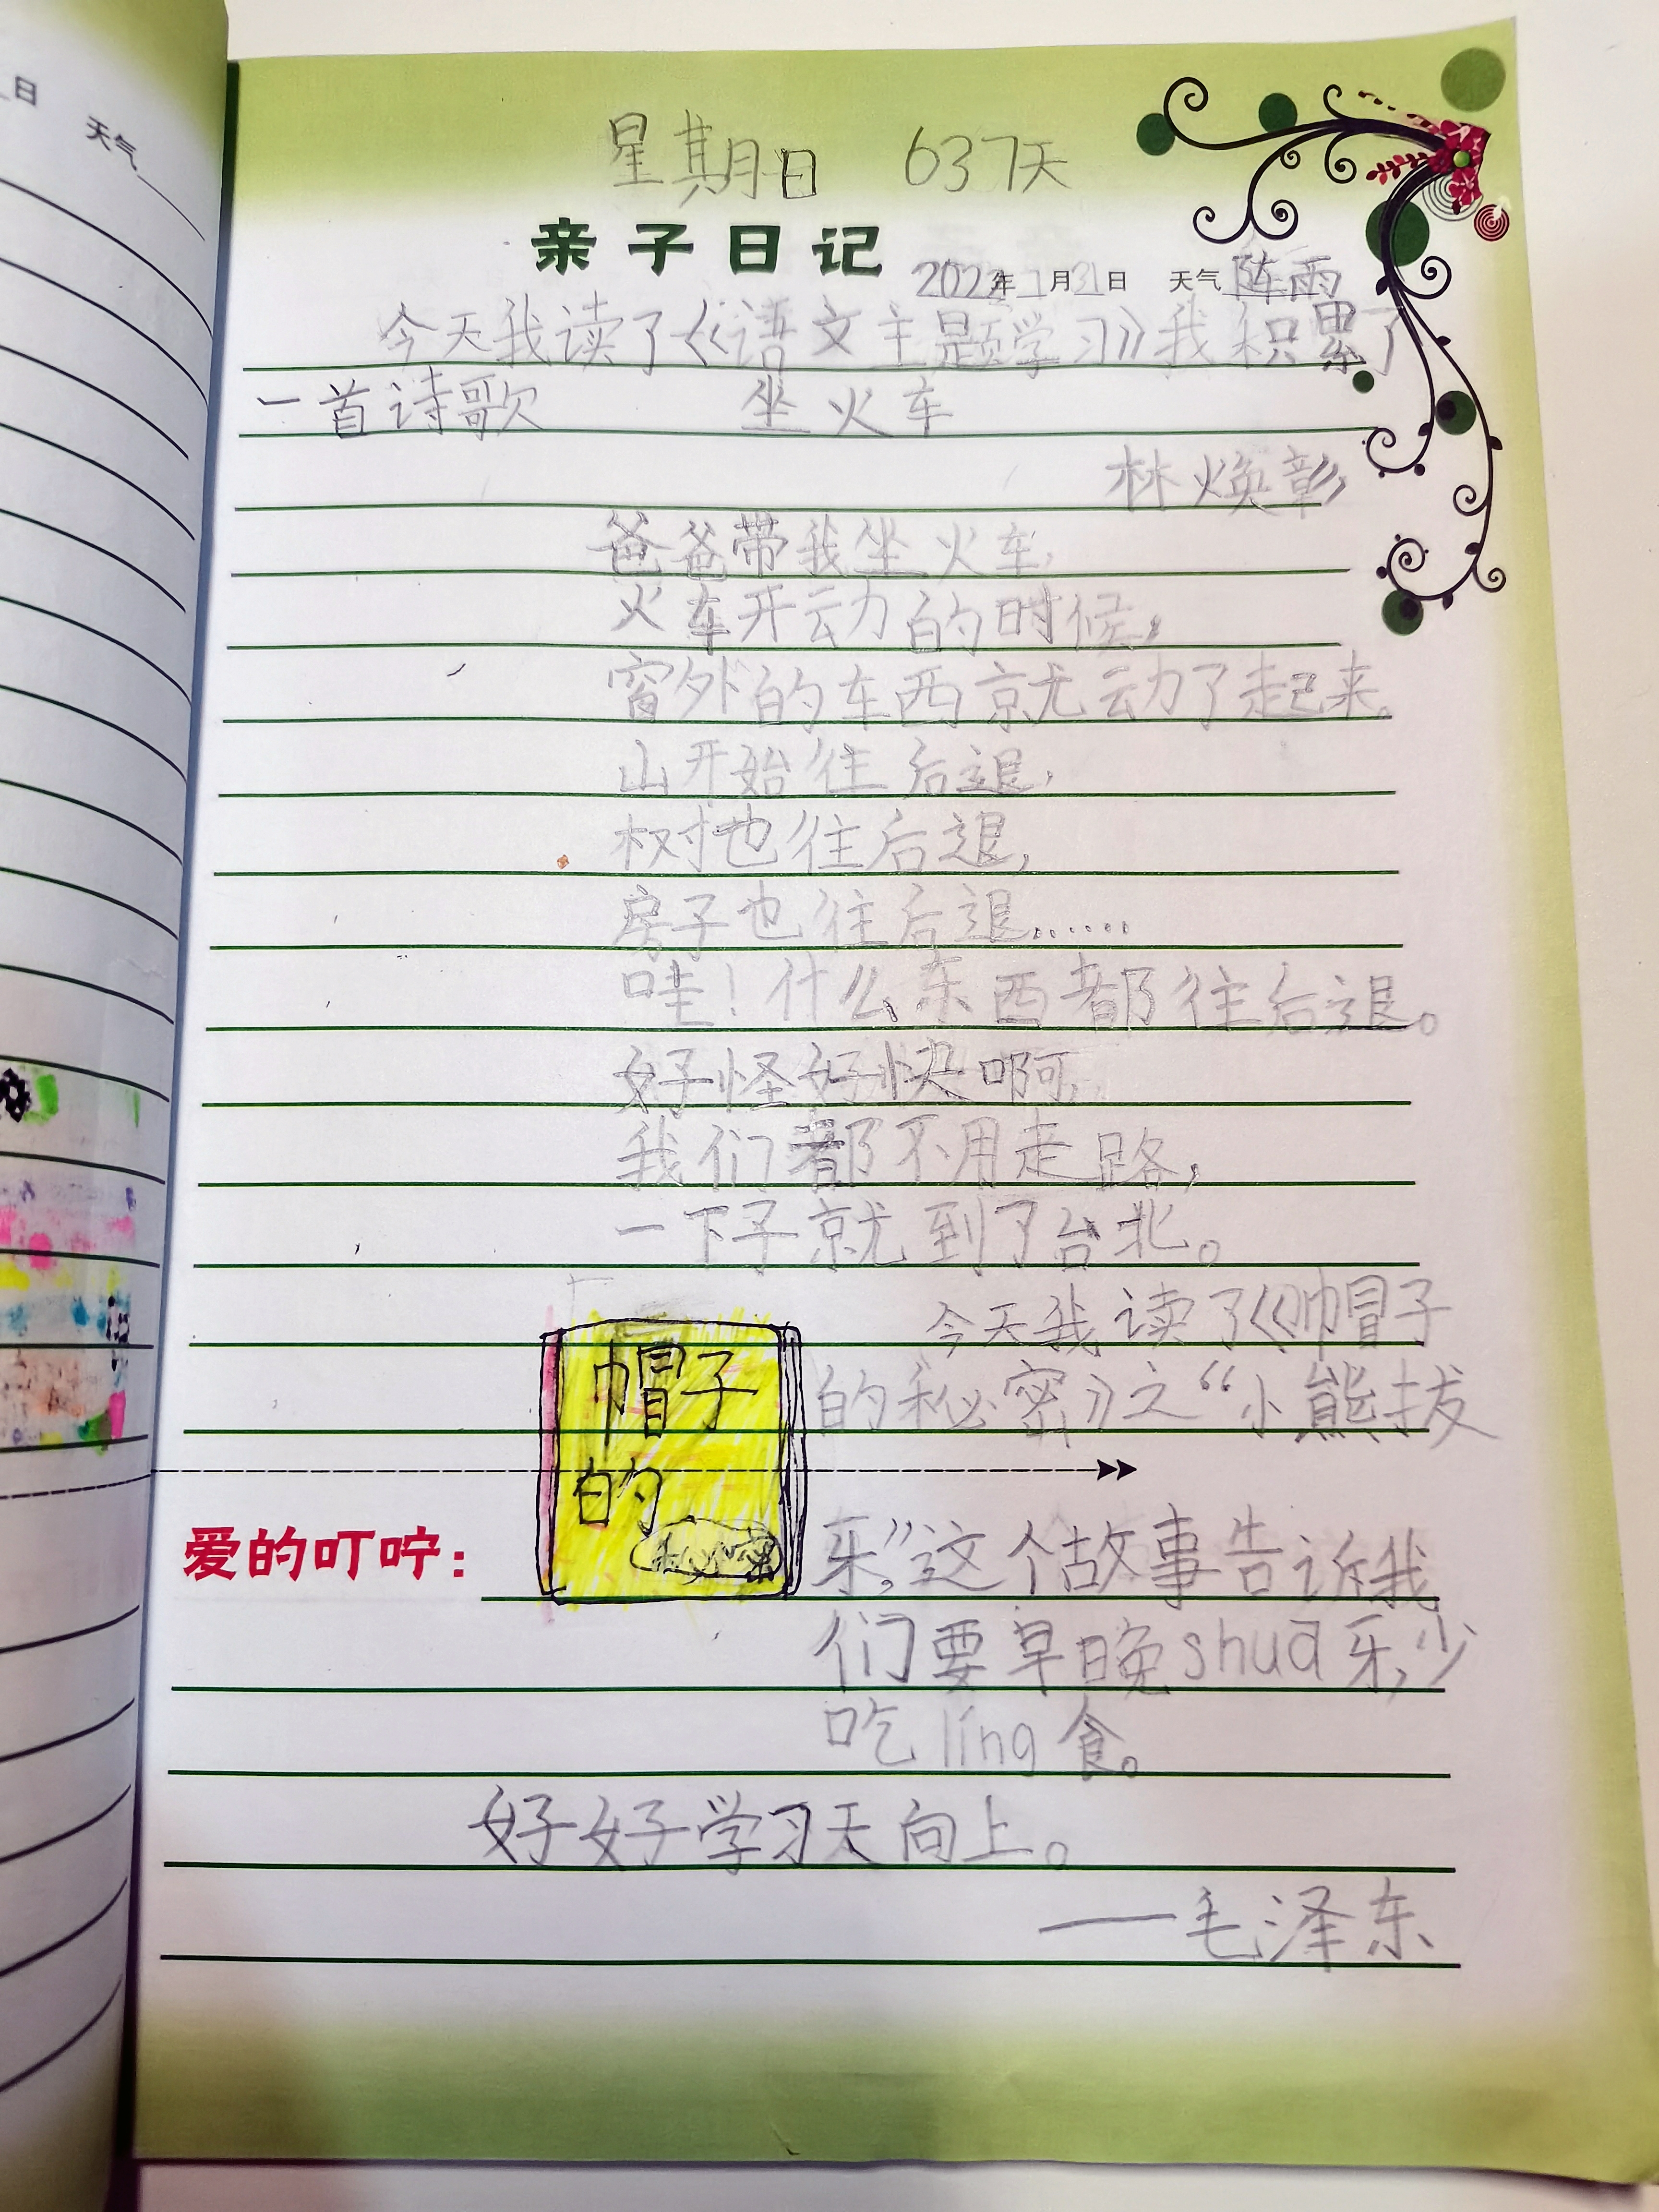 日
天气
星期日 637天
亲子日记 2022年7月31日 天气 阵雨
今天我读了《语文主题学习》我积累了
一首诗歌 坐火车
林焕彰
爸爸带我坐火车,
火车开动的时候,
窗外的车西就动了起来。
山开始往后退,
树也往后退,
房子也往后退……
哇!什么东西都往后退。
好怪好快啊,
我们都不用走路,
一下子就到了台北。
今天我读了《帽子
的秘密》之“小熊拔
牙”,这个故事告诉我
们要早晚shuā牙,少
吃líng食。
帽子
的
爱的叮咛:
好好学习天向上。
——毛泽东